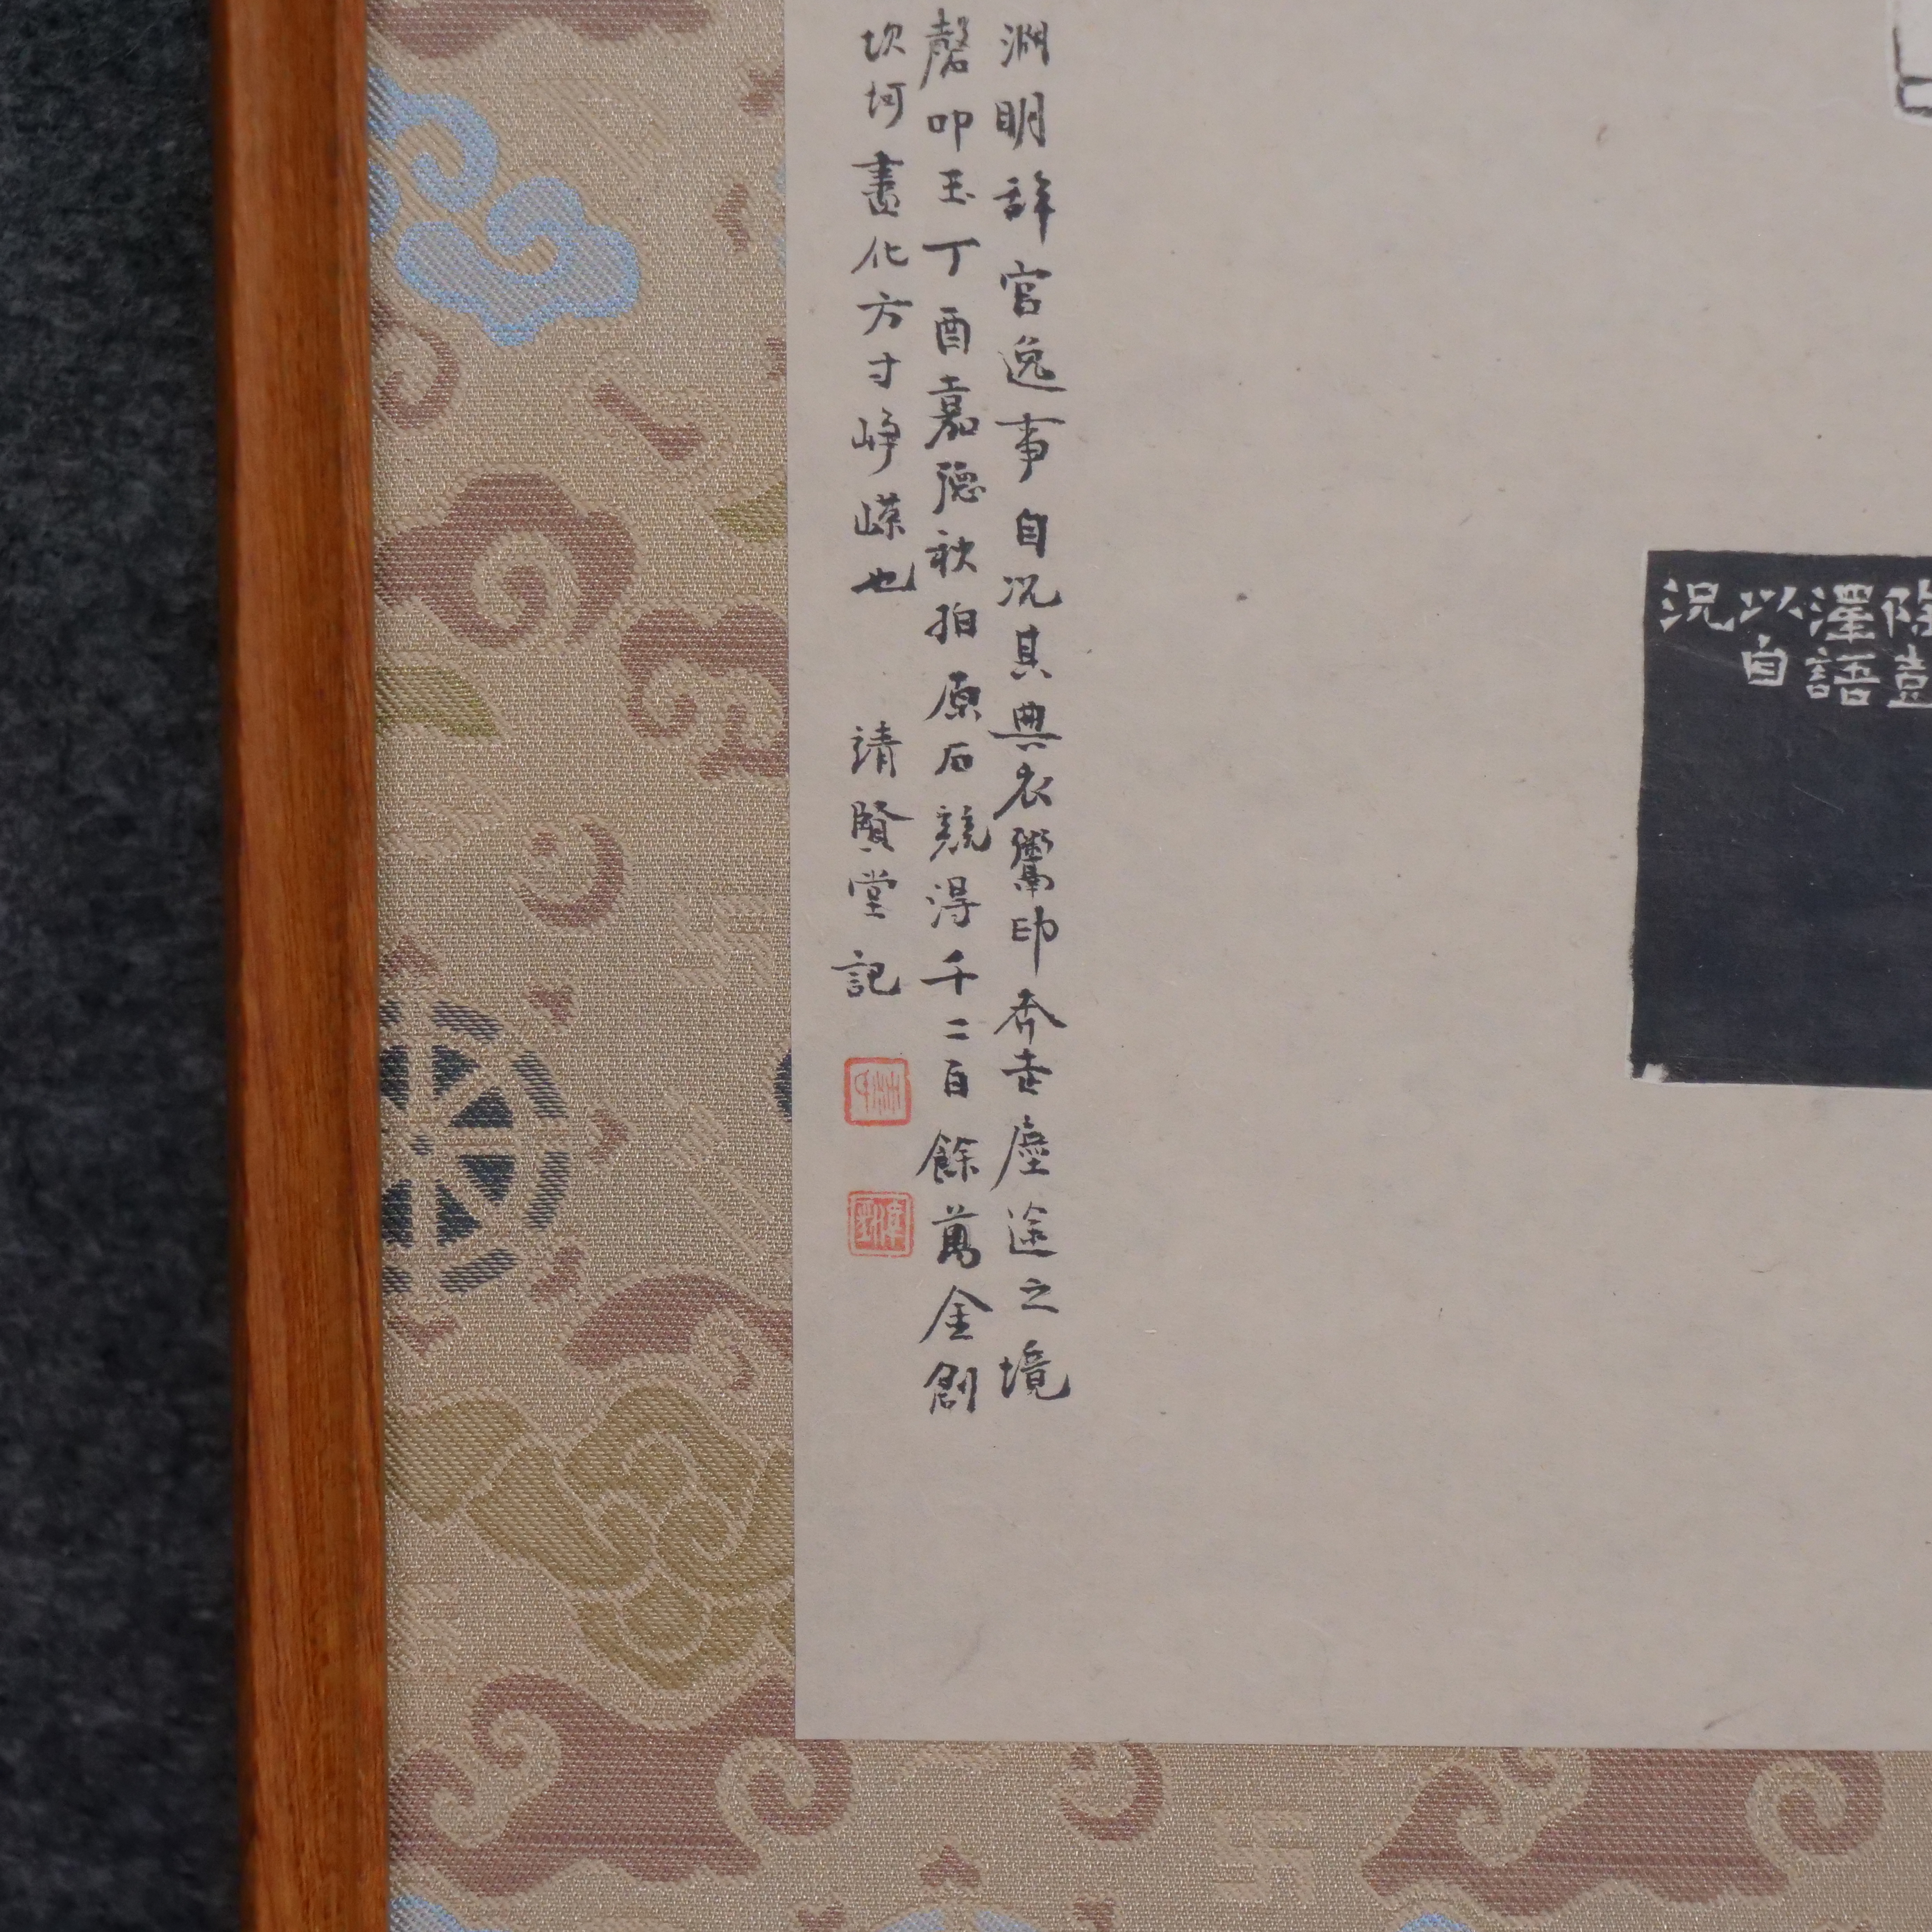 除壹
澤語
以自
況
淵明辞官逸事自況其典衣鬻印奔走塵途之境
磬叩玉丁酉嘉德秋拍原石競得千二百餘萬金創
坎坷畫化方寸崢嶸也 請賢堂記